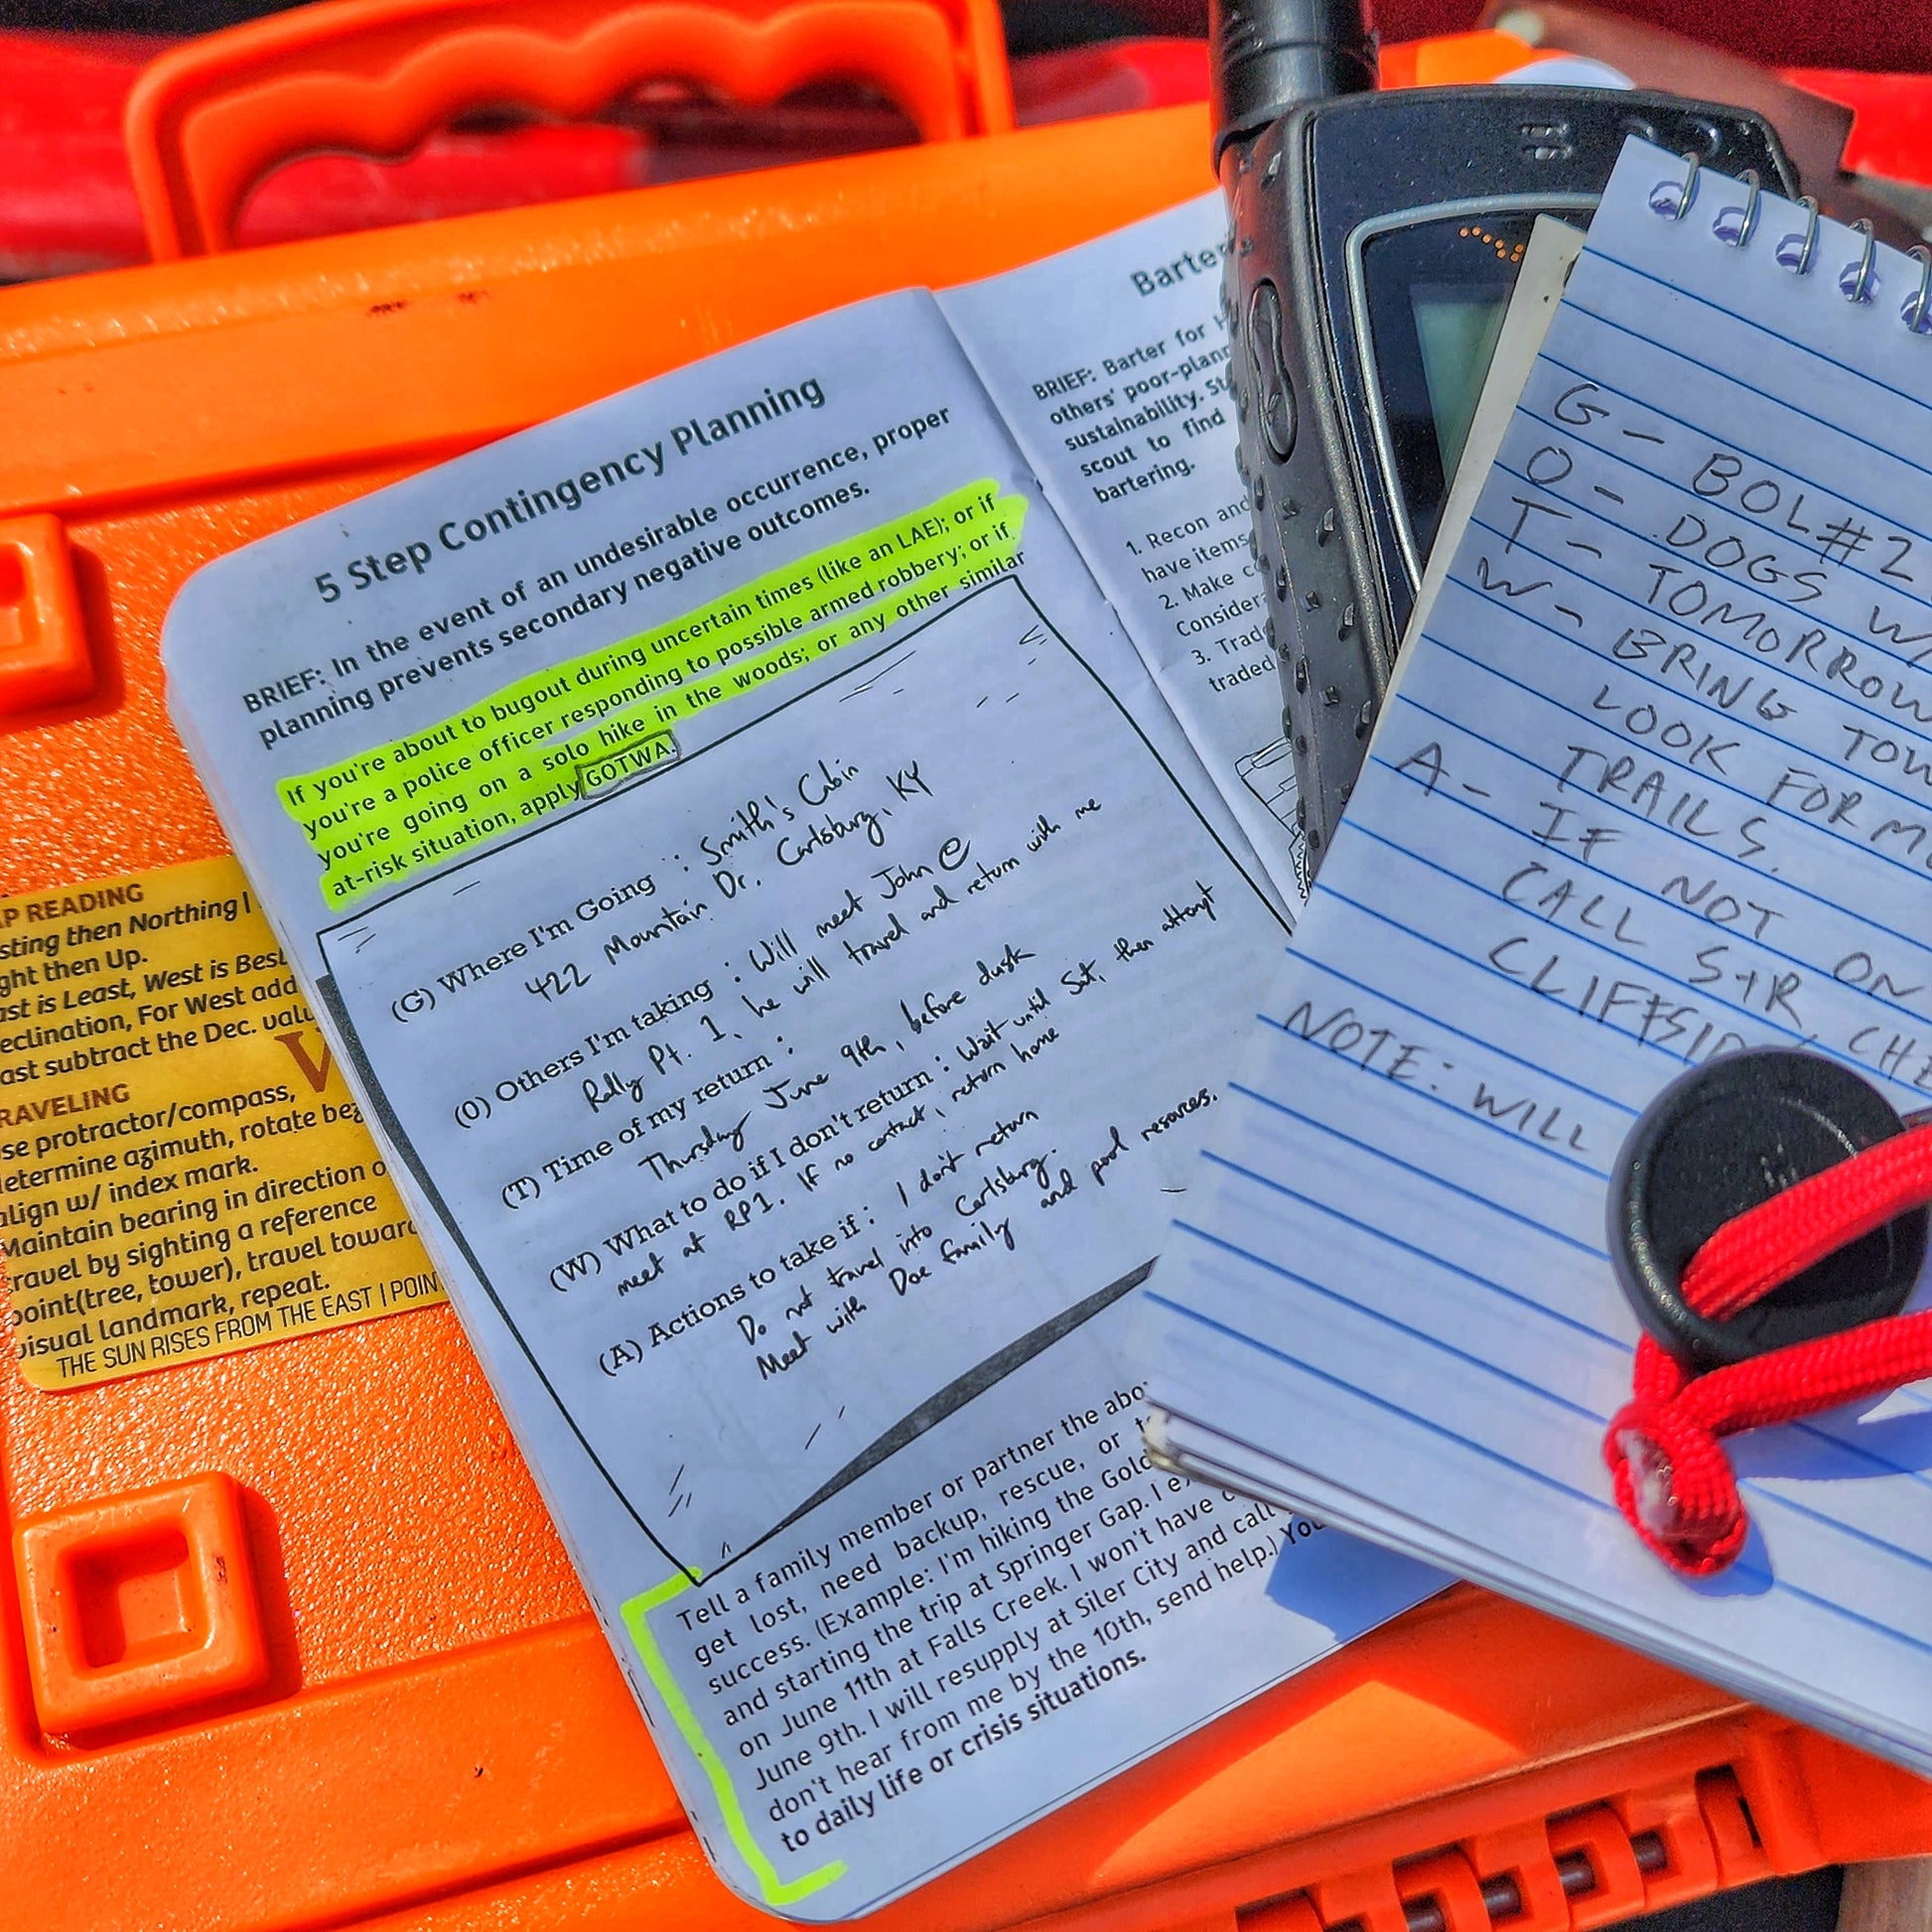 5 Step Contingency Planning
BRIEF: In the event of an undesirable occurrence, proper
planning prevents secondary negative outcomes.
If you're about to bugout during uncertain times (like an LAE); or if
you're a police officer responding to possible armed robbery; or if
you're going on a solo hike in the woods; or any other similar
at-risk situation, apply GOTWA.
(G) Where I'm Going : Smith's Cabin
422 Mountain Dr. Carlsburg, KY
(O) Others I'm taking : Will meet John @
Rally Pt. 1, he will travel and return with me
(T) Time of my return :
Thursday June 9th, before dusk
(W) What to do if I don't return : Wait until Sat, then attempt
meet at RP1. If no contact, return home
(A) Actions to take if : I don't return
Do not travel into Carlsburg.
Meet with Doe family and pool resources.
Tell a family member or partner the
get lost, need backup, rescue, or
success. (Example: I'm hiking the
and starting the trip at Springer Gap. I
on June 11th at Falls Creek. I won't have
June 9th. I will resupply at Siler City and call
don't hear from me by the 10th, send help.)
to daily life or crisis situations.
BRIEF: Barter for
others'
sustainability.
scout to find
bartering.
1. Recon and
have items
2. Make
3.
traded
G - BOL#2
O - DOGS
T - TOMORROW
W - BRING
LOOK FOR
TRAILS.
A - IF NOT ON
CALL S+R,
NOTE: WILL
READING
then Northing |
then Up.
is Least, West is Best
For West add
subtract the Dec.
protractor/compass,
azimuth, rotate
w/ index mark.
Maintain bearing in direction
by sighting a reference
point(tree, tower), travel
landmark, repeat.
THE SUN RISES FROM THE EAST |